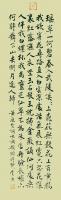 瑤草一何碧春入武陵溪溪上桃花無數花上有黃鸝
我欲穿花尋路直入白雲深處浩氣展虹霓祇恐花深
裏紅露濕人衣坐玉石倚玉枕拂金徽謫仙何處無
人伴我白螺杯我為靈芝仙草不為朱唇丹臉長嘯亦
何為醉舞下山去明月逐人歸